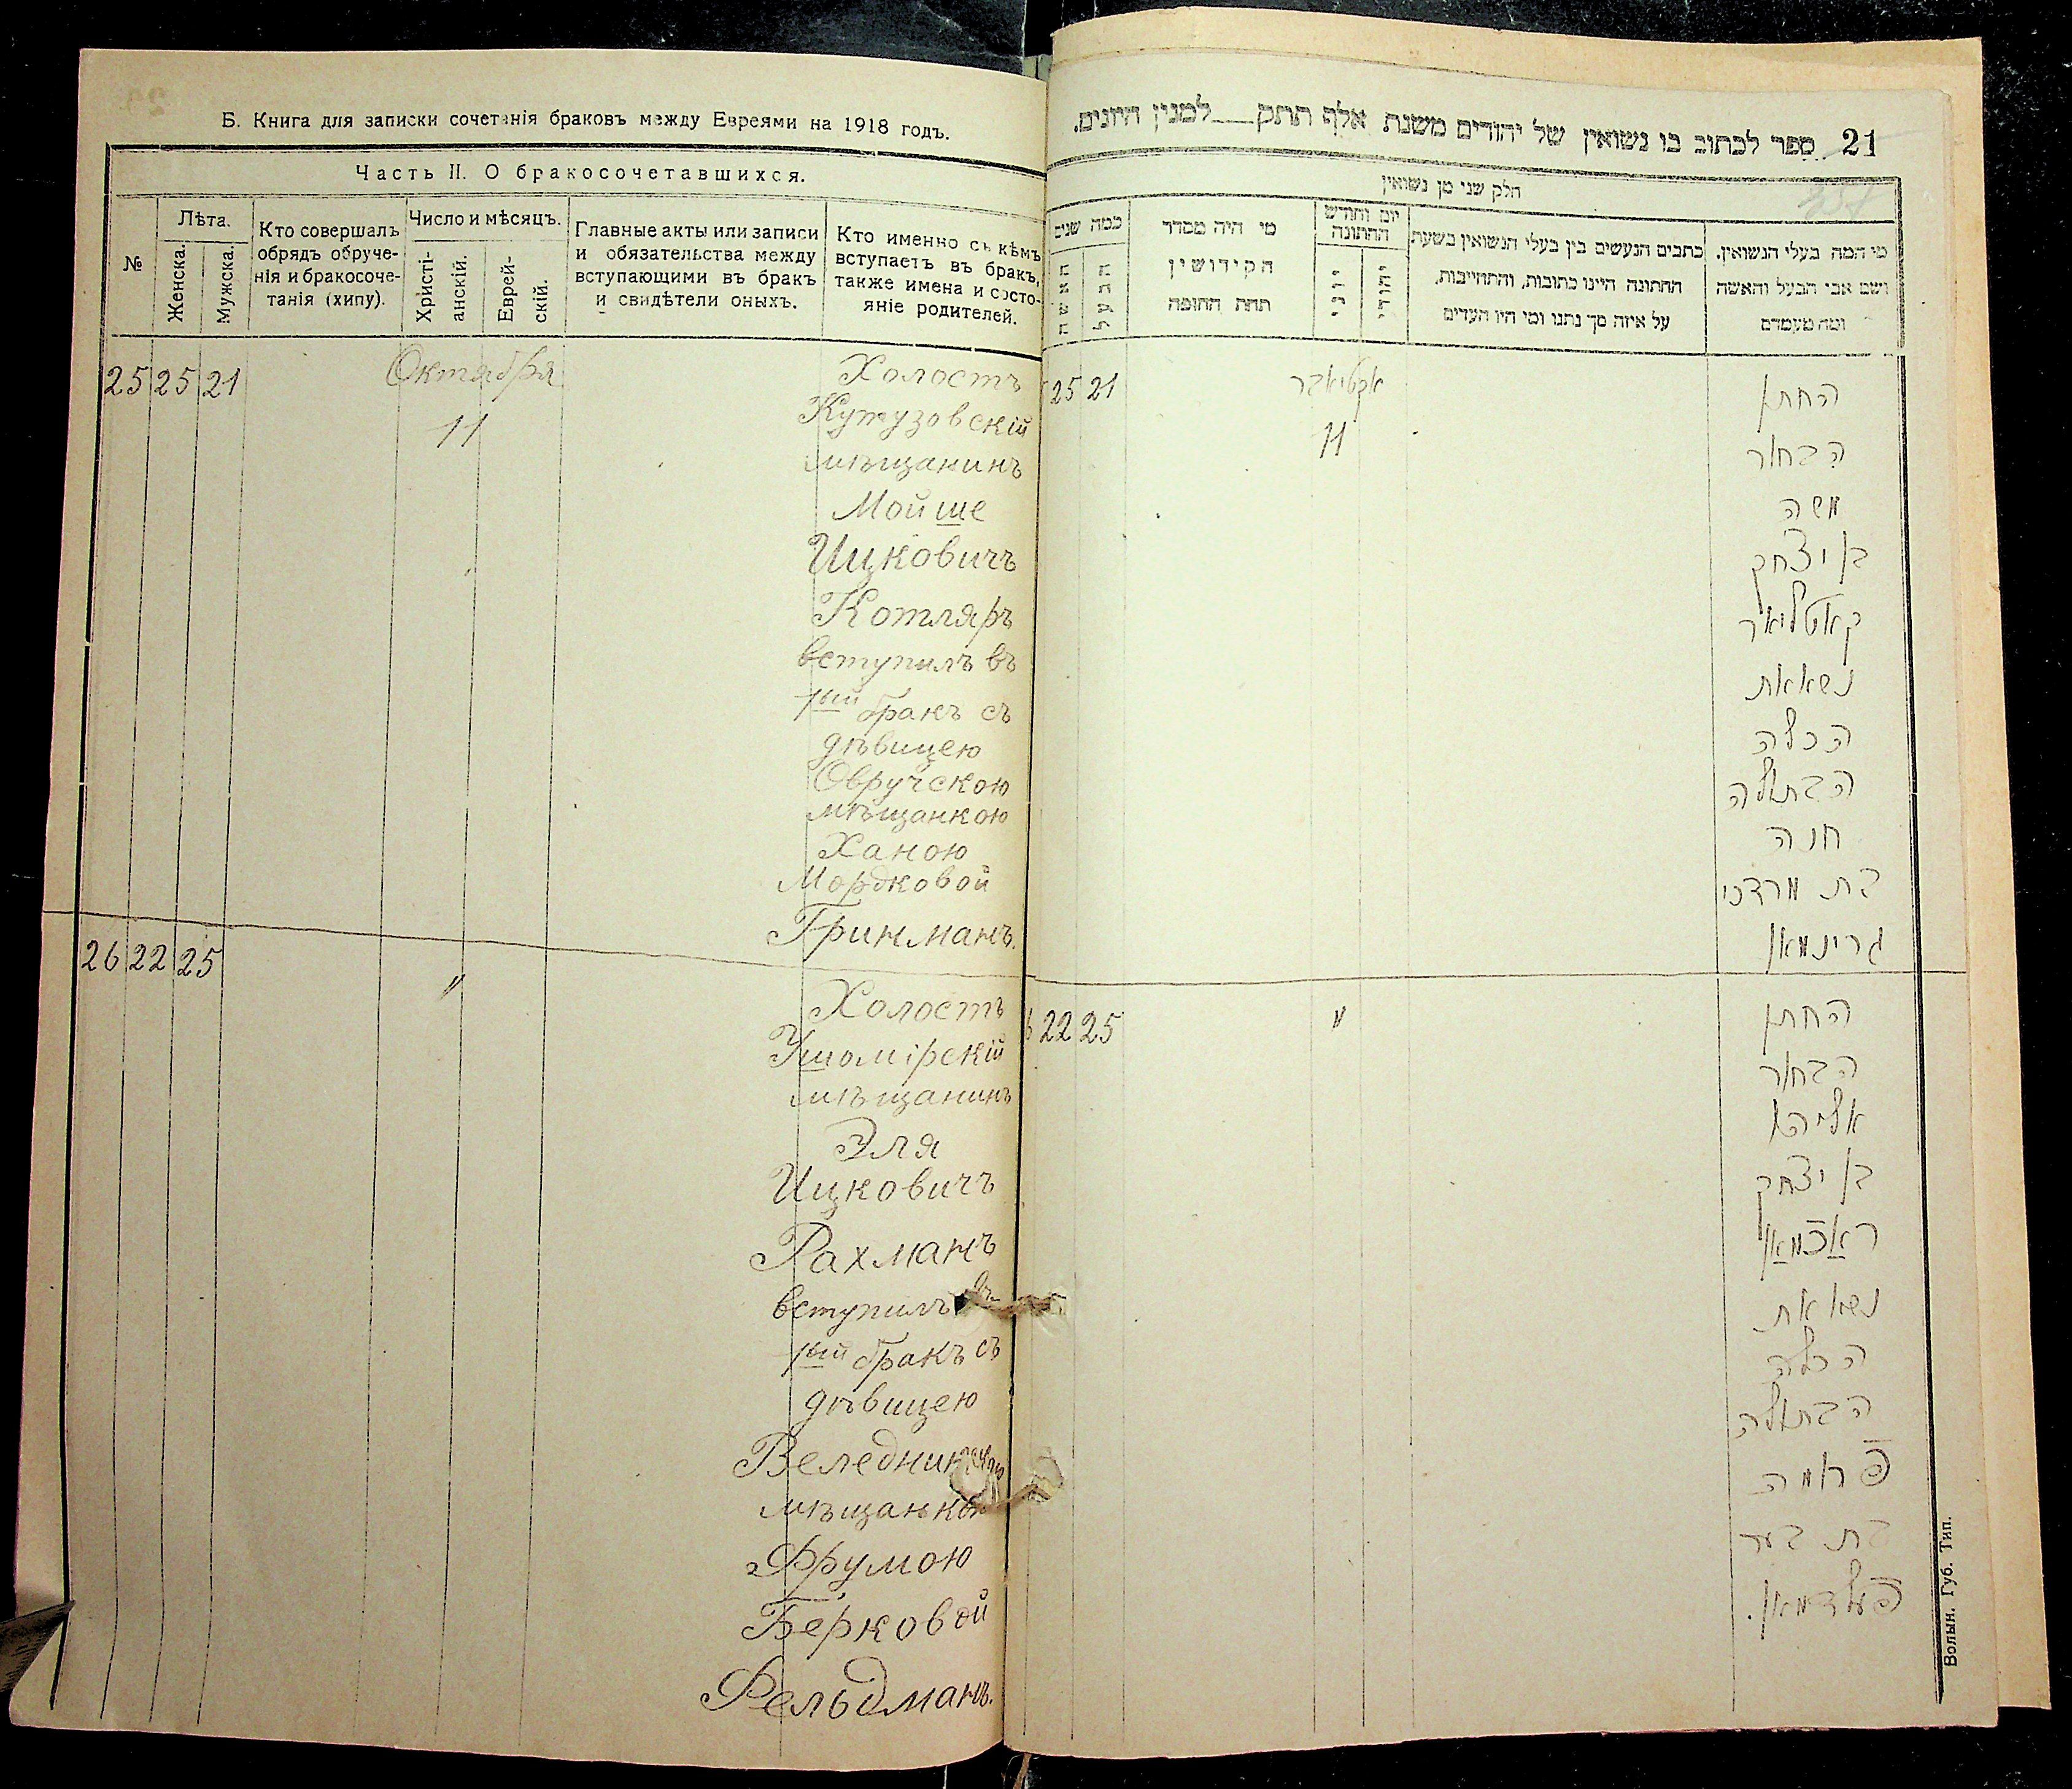 Б. Книга для записки сочетанія браковъ между Евреями на 1918 годъ.
Часть II. О бракосочетавшихся.
№
Лѣта.
Женска.
Мужска.
Кто совершалъ
обрядъ обруче-
нія и бракосоче-
танія (хипу).
Число и мѣсяцъ.
Христі-
анскій.
Еврей-
скій.
Главные акты или записи
и обязательства между
вступающими въ бракъ
и свидѣтели оныхъ.
Кто именно съ кѣмъ
вступаетъ въ бракъ,
также имена и состо-
яніе родителей.
25 25 21
Октября
11
Холостъ
Кутузовскій
мѣщанинъ
Мойше
Ицковичъ
Котляръ
вступилъ въ
1ый бракъ съ
дѣвицею
Овручскою
мѣщанкою
Ханою
Мордковой
Гринманъ.
26 22 25
"
Холостъ
Ушомірскій
мѣщанинъ
Эля
Ицковичъ
Рахманъ
вступилъ въ
1ый бракъ съ
дѣвицею
Веледникскою
мѣщанкою
Фрумою
Берковой
Фельдманъ.
21 ספר לכתוב בו נשואין של יהודים משנת אלף תתק למנין היונים.
חלק שני מן נשואין
כמה שנים
האשה
הבעל
מי היה מסדר
הקידושין
תחת החופה
יום וחודש
החתונה
יוני
יהודי
כתבים הנעשים בין בעלי הנשואין בשעת
החתונה היינו כתובות, והתחייבות,
על איזה סך נתנו ומי היו העדים
מי המה בעלי הנשואין.
ושם אבי הבעל והאשה
ומה מעמדם
25 21
אקטיאבר
11
החתן
הבחור
משה
בן יצחק
קאטליאר
נשאאת
הכלה
הבתולה
חנה
בת מרדכי
גרינמאן
22 25
"
החתן
הבחור
אליהו
בן יצחק
ראכמאן
נשאאת
הכלה
הבתולה
פרומה
בת בער
פעלדמאן.
Волын. Губ. Тип.